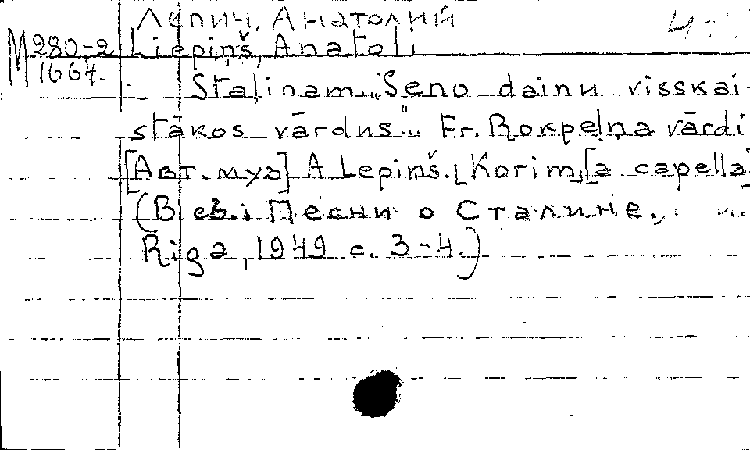 Лепин, Анатолий
M 280-2 Liepiņš, Anatoli
1667.
Staļinam „Seno dainu visskai-
stākos vārdus". Fr. Rokpelņa vārdi
[Авт. муз] A Lepiņš. [Korim, [a capella]
(В сб.: Песни о Сталине.
Riga, 1949 c. 3-4.)